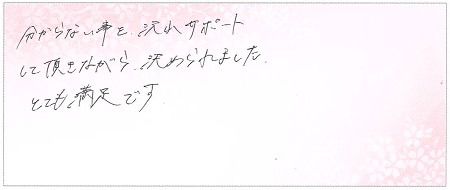 分からない事を、沢れサポート
して頂きながら、決められました。
とても満足です